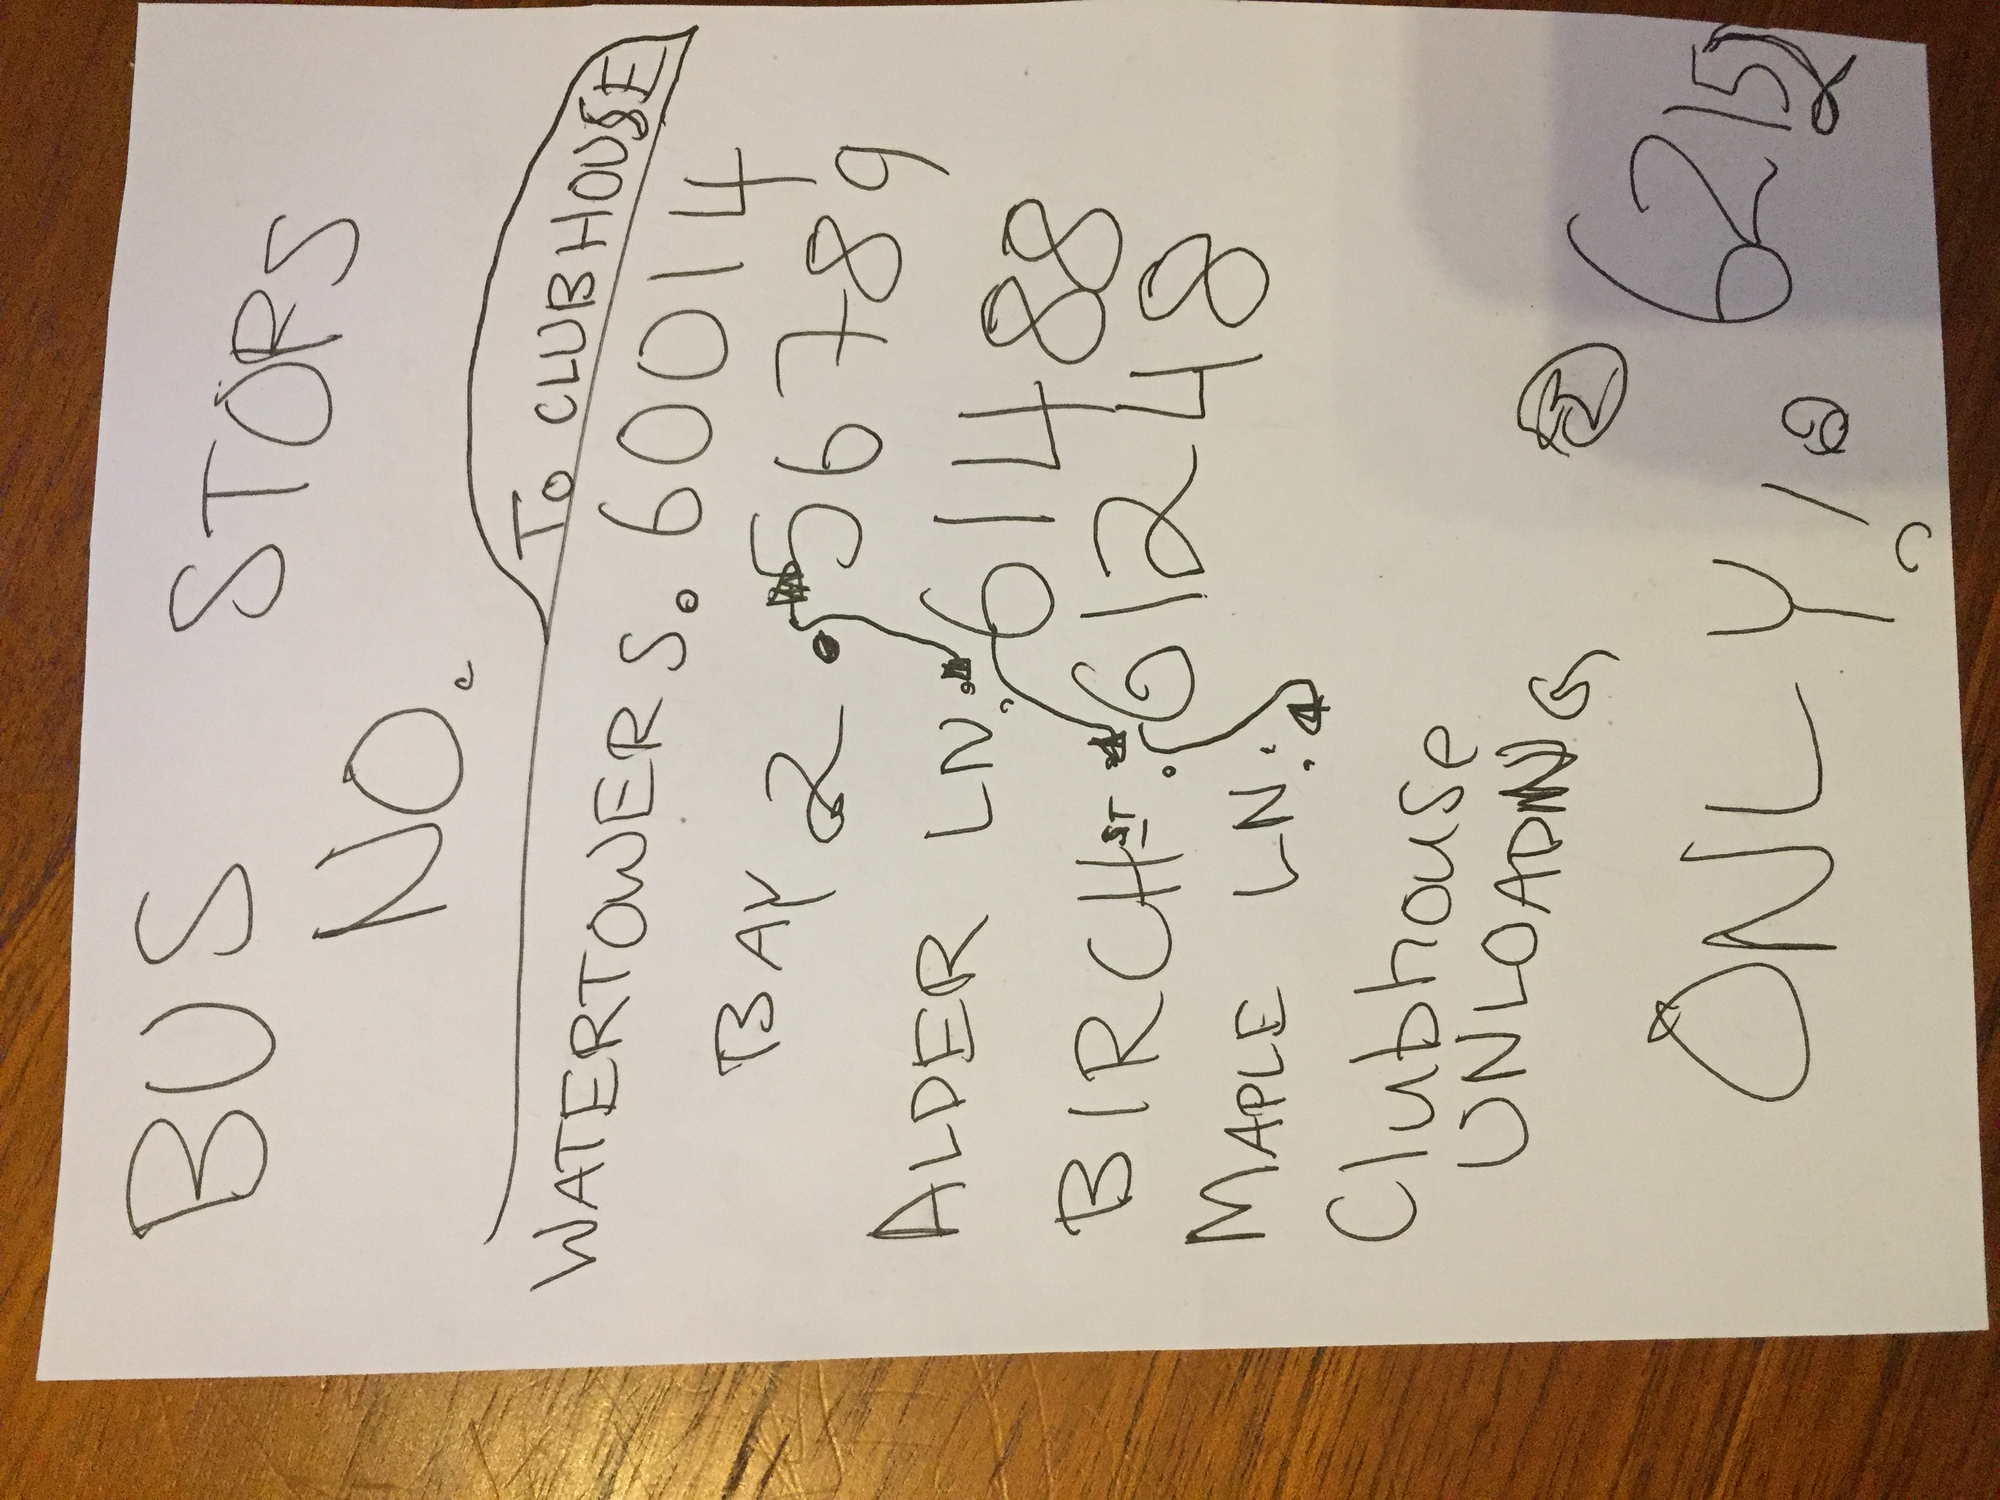 BUS STORS
NO.
TO CLUBHOUSE
WATERTOWERS. 60014
BAY 2. 56789
ALDER LN. 61488
BIRCH ST. 61248
MAPLE LN.
Clubhouse
UNLOADING
ONLY! 62152